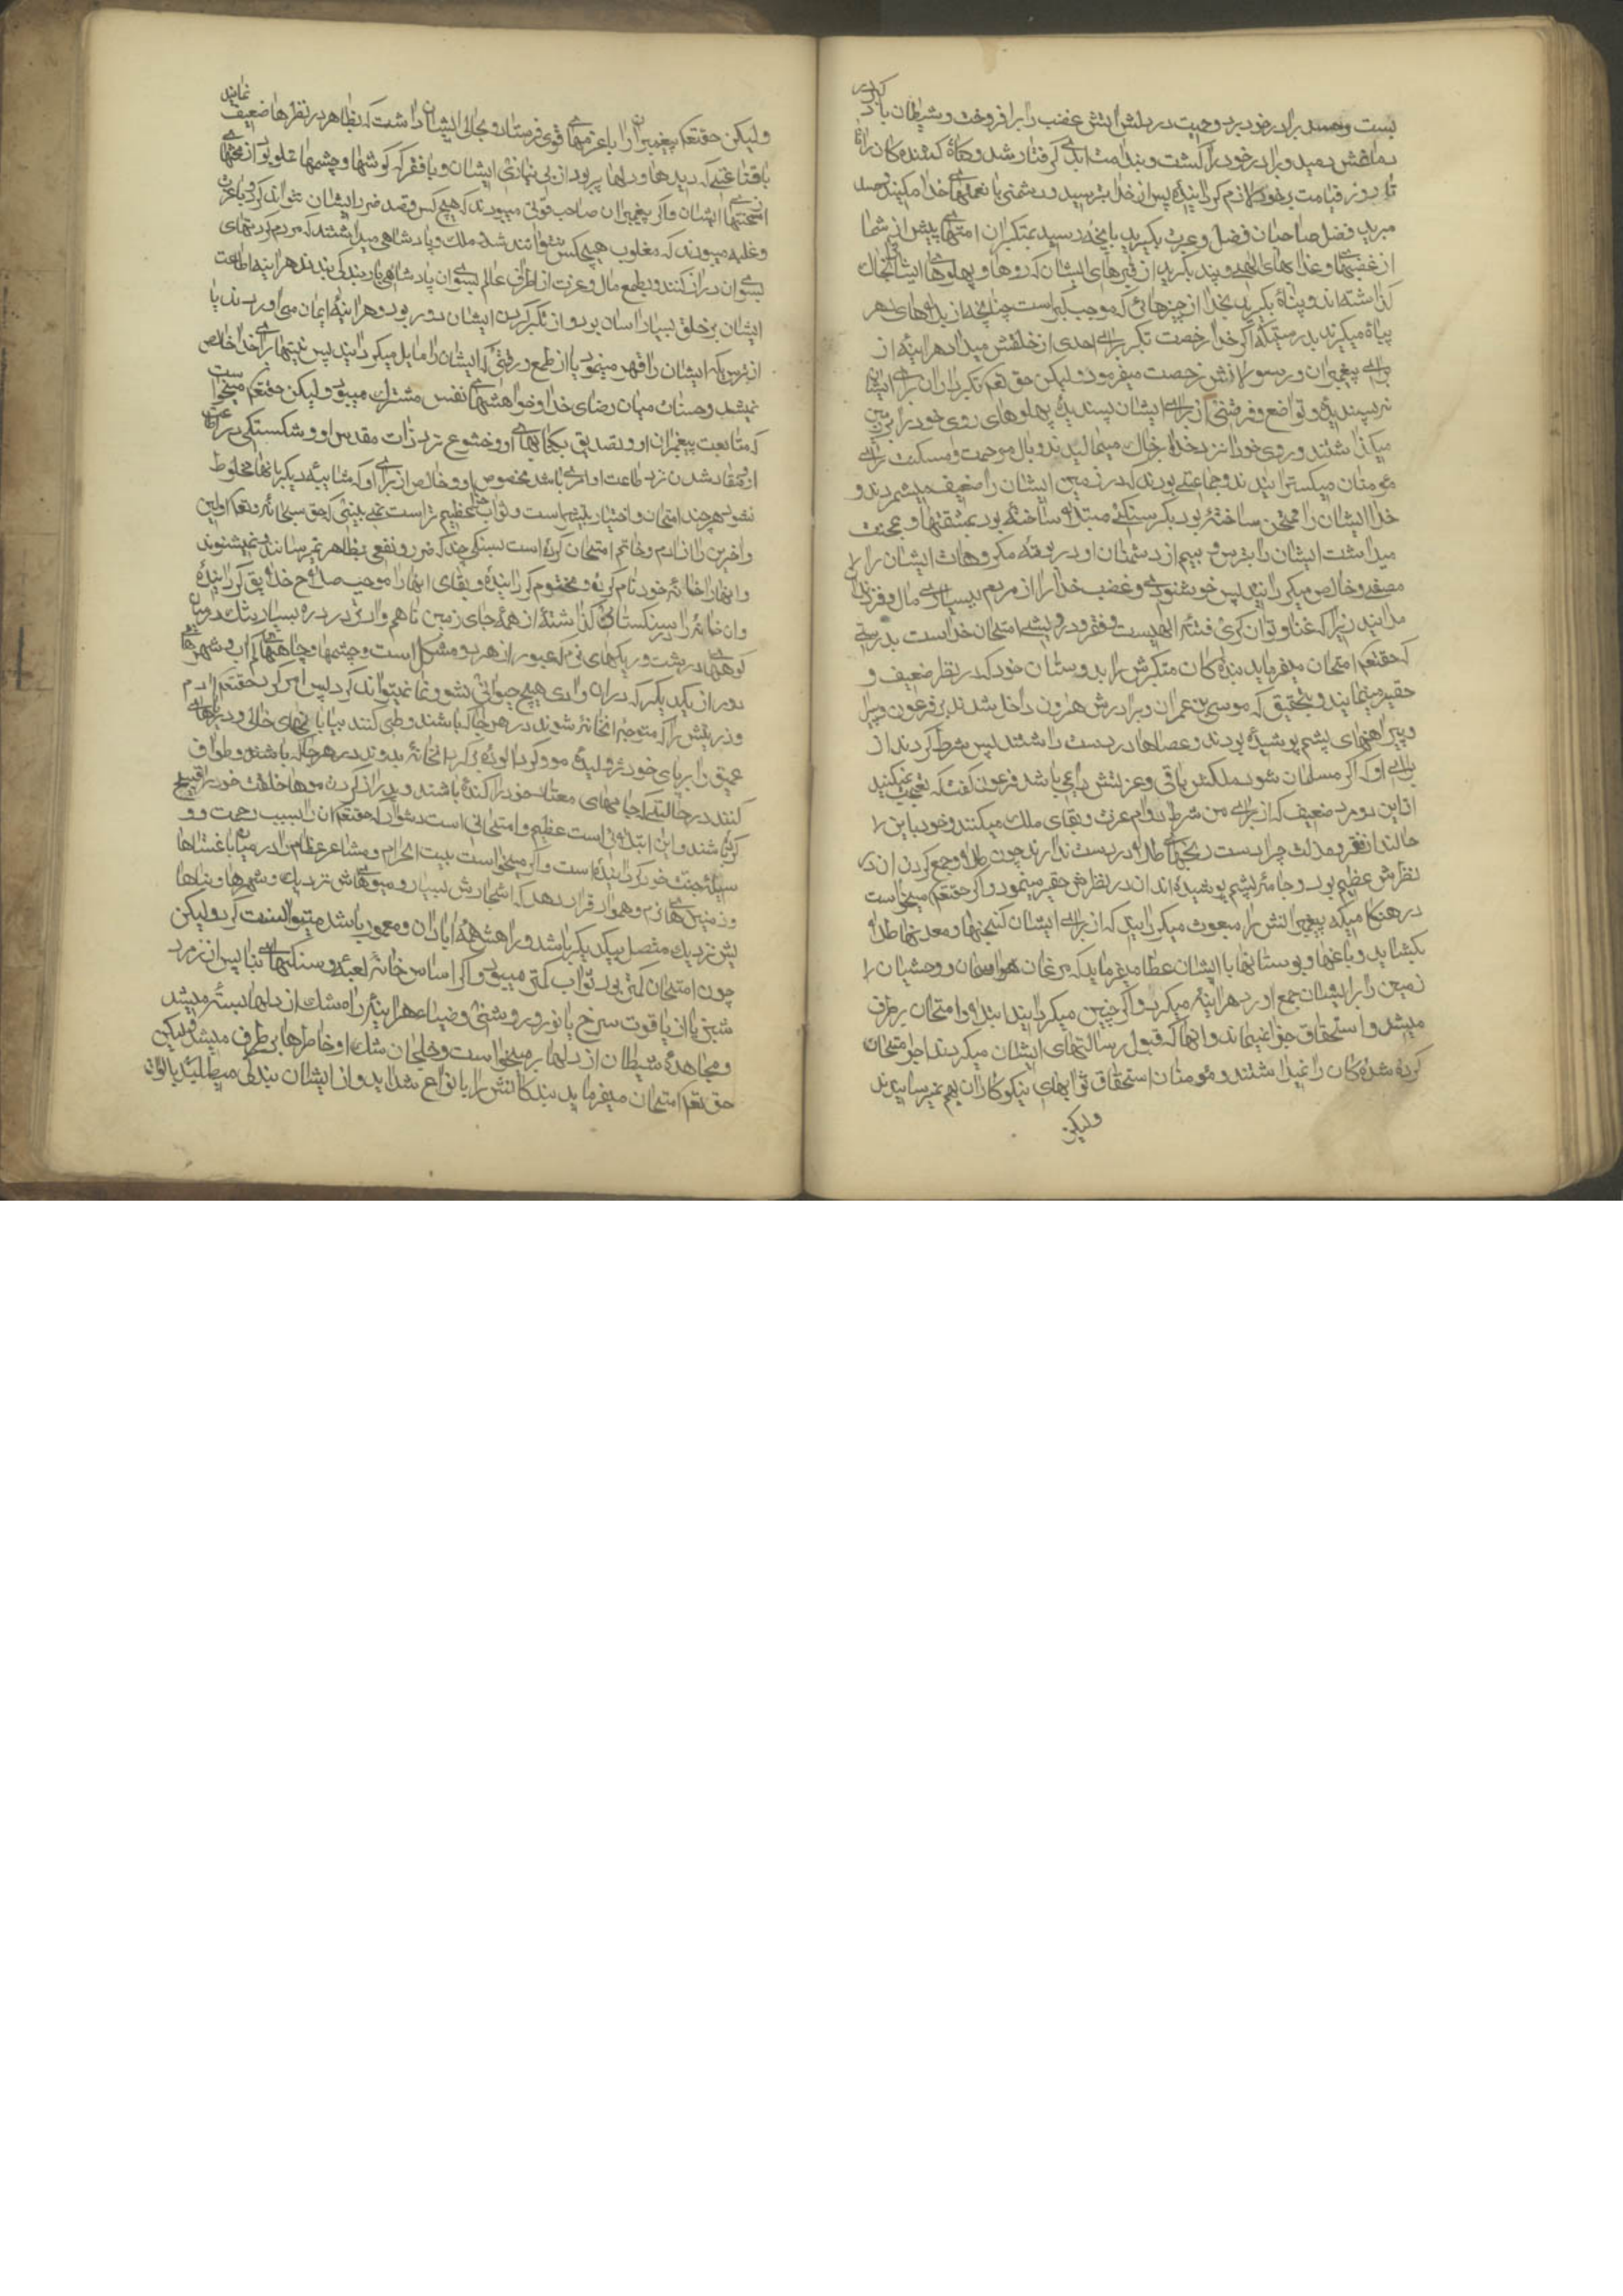 کبر در
بست وحسد برادر خود برد و حمیت در دلش اتش غضب را برافروخت و شیطان باد
دماغش دمید و برادر خود را کشت و بندامت ابدی گرفتار شد و گناه کشنده کان را تا
روز قیامت بر خود لازم گردانیده پس از خدا بترسید و دشمنی با نعمتهای خدا مکنید و حسد
مبرید فضل صاحبان فضل و عبرت بگیرید بانچه رسید بمتکبران امتهای پیش از شما
از غضبها و عذابهای الهی و پند بگیرید از قبرهای ایشان که روها و پهلوهای ایشان بخاک
گذاشته اند و پناه بگیرید بخدا از چیزهائی که موجب کبر است چنانچه از بلاهای دهر
پناه میگیرند بدرستیکه اگر خدا رخصت تکبر برای احدی از خلقش میداد هر اینه از
برای پیغمبران و رسولانش رخصت میفرمود ولیکن حق تعم تکبر را از برای ایشان
نپسندیده و تواضع و فروتنی از برای ایشان پسندیده پهلوهای روی خود را بر زمین
میگذاشتند و روی خود را نزد خدا بر خاک میمالیدند و بال مرحمت و مسکنت برای
مؤمنان میگسترانیدند و جماعتی بودند که در زمین ایشان را ضعیف میشمردند و
خدا ایشان را ممتحن ساخته بود بگرسنگی و مبتلا ساخته بود بمشقتها و محنت
میداشت ایشان را بترس و بیم از دشمنان و در بوته مکروهات ایشان را
مصفی و خالص میگردانید پس خوشنودی و غضب خدا را از مردم ببسیاری مال و فرزندان
مدانید زیرا که غنا و توانگری فتنه الهیست و فقر و درویشی امتحان خداست بدرستی
که حقتعم امتحان میفرماید بنده کان متکبرش را بدوستان خود که در نظر ضعیف و
حقیر مینمایند و بتحقیق که موسی بن عمران و برادرش هارون داخل شدند بر فرعون
و پیراهنهای پشم پوشیده بودند و عصاها در دست داشتند پس شرط کردند از
برای او که اگر مسلمان شود ملکش باقی و عزتش دایمی باشد فرعون گفت که تعجب نمیکنید
از این دو مرد ضعیف که از برای من شرط دوام عزت و بقای ملک میکنند و خود باین
حالند از فقر و مذلت چرا دست رنجهای طلا در دست ندارند چون طلا و جمع کردن ان در
نظرش عظیم بود و جامه پشم پوشیده اند ان در نظرش حقیر مینمود و اگر حقتعم میخواست
در هنگامیکه پیغمبرانش را مبعوث میگردانید که از برای ایشان گنجها و معدنها طلا
بگشاید و باغها و بوستانها با ایشان عطا میفرماید که مرغان هوا و اسمان و وحشیان
زمین را با ایشان جمع اورد هر اینه میکرد و اگر چنین میکرد اینها ابتلا و امتحان برطرف
میشد و استحقاق جزا نمیماند و انها که قبول رسالتهای ایشان میکردند اجر امتحان
کرده شده کان را نمیداشتند و مؤمنان استحقاق ثوابهای نیکوکاران بهم نمیرسانیدند
ولیکن
نمایند
ولیکن حقتعم پیغمبران را با عزمهای قوی فرستاد و بحالی ایشان را داشت که بظاهر در نظرها ضعیف
با قناعتی که دیدها و دلها پر بود از بی نیازی ایشان و با فقر که گوشها و چشمها مملو بود از محنتها
ایشان و اگر پیغمبران صاحب قوتی میبودند که هیچ کس قصد ضرر ایشان نتواند کرد و با عزت
و غلبه میبودند که مغلوب هیچ کس نتوانند شد و ملک و پادشاهی میداشتند که مردم گردنهای
بسوی ان دراز کنند و بطمع مال و عزت از اطراف عالم بسوی ان پادشاهی بار بندگی بندند هر اینه اطاعت
ایشان بر خلق بسیار اسان بود و از تکبر کردن ایشان دور بود و هر اینه ایمان می اوردند یا
از ترس که ایشان را قهر مینمود یا از طمع و رغبتی که ایشان را مایل میگردانید پس نیتها برای خدا خالص
نمیشد و حسنات میان رضای خدا و خواهشهای نفس مشترک میبود ولیکن حقتعم میخواست
که متابعت پیغمبران او و تصدیق بکتابهای او و خشوع نزد ذات مقدس او و شکستگی در
و منقاد شدن نزد طاعت او امری باشد مخصوص او و خالص از برای او که شایبه دیگر بانها مخلوط
نشود هر چند امتحان و اختیار بیشتر است و ثواب جزا عظیم تر است نمی بینی که حق سبحانه و تعم اولین
و اخرین را از ادم و خاتم امتحان کرده است بسنگی چند که ضرر و نفعی بظاهر نمیرسانند و نمیشنوند
و انها را خانه خود نام کرده و محترم گردانیده و بقای انها را موجب صلاح خلایق گردانیده
و ان خانه را در سنگستانی گذاشته از همه جای زمین ناهموارتر در دره بسیار تنک در میان
کوههای درشت و ریکهای نرم که عبور از هر دو مشکل است و چشمها و چاههای کم اب و شهرهای
دور از یکدیگر که دران وادی هیچ حیوانی نشو و نما نمیتواند کرد پس امر کرد حقتعم ادم
و ذریتش را که متوجه انخانه شوند در هر جا که باشند و طی کنند بیابانهای خالی و دریاهای
عمیق را بر پای خود ژولیده مو و گرد الوده گرد انخانه بدوند در هر جا که باشند و طواف
کنند در حالتی که جامهای معتاد خود را کنده باشند و بدراز کردن موها خلقت خود را قبیح
کرده باشند و این ابتلائی است عظیم و امتحانی است دشوار که حقتعم ان را سبب رحمت و
وسیله جنت خود گردانیده است و اگر میخواست بیت الحرام و مشاعر عظام را در میان باغستانها
و زمین های نرم و هموار قرار دهد که اشجارش بسیار و میوهاش نزدیک و شهرها و بناها
یش نزدیک متصل بیکدیگر باشد و راهش همه ابادان و معمور باشد میتوانست کرد ولیکن
چون امتحان کمتر بود ثواب کمتر میبود و اگر اساس خانه کعبه و سنگهای بنایس از زمرد
سبز یا از یاقوت سرخ با نور و روشنی و ضیاء هر اینه راه شک از دلها بسته میشد
و مجاهده شیطان از دلها برمیخواست و خلجان شک از خاطرها برطرف میشد ولیکن
حق تعم امتحان میفرماید بندکانش را بانواع شداید و از ایشان بندگی میطلبد بالوان